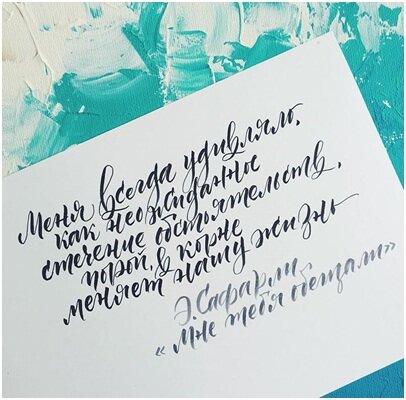 Меня всегда удивляло,
как неожиданное
стечение обстоятельств,
порой, в корне
меняет нашу жизнь
Э. Сафарли
«Мне тебя обещали»